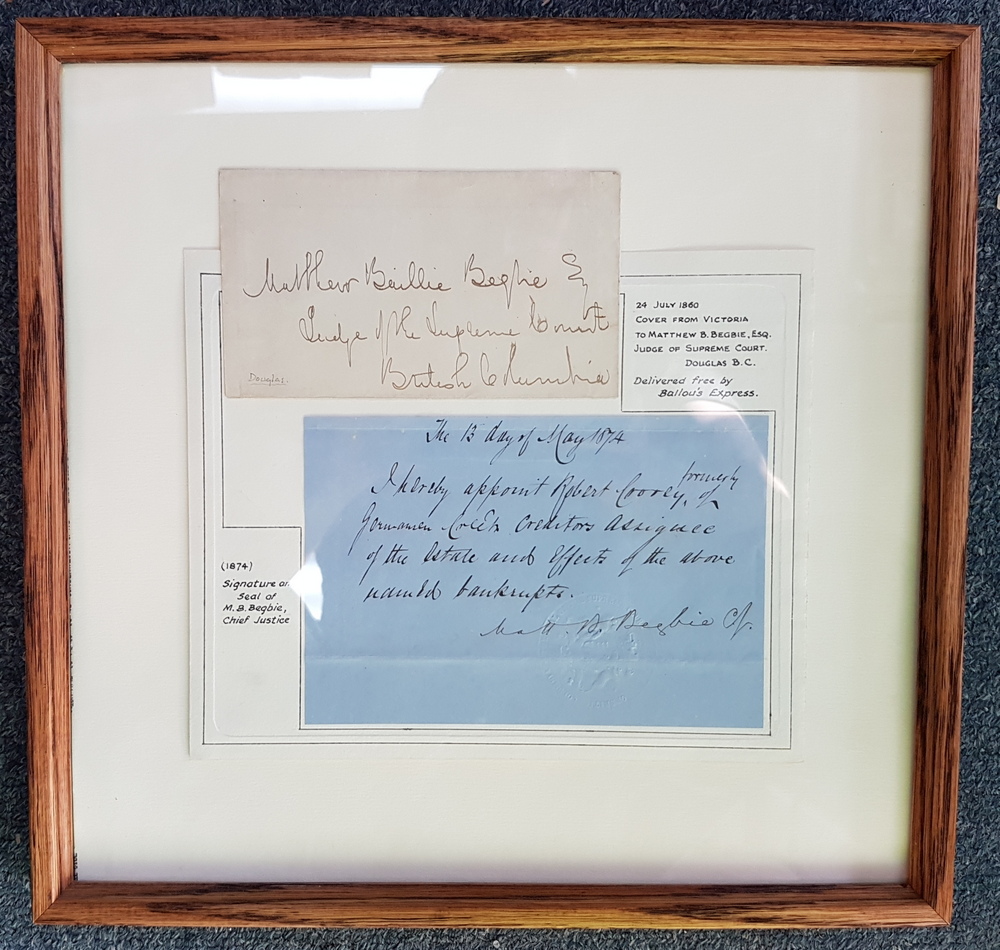 Matthew Baillie Begbie Esq
Judge of the Supreme Court
British Columbia
Douglas.
24 July 1860
Cover from Victoria
to Matthew B. Begbie, Esq.
Judge of Supreme Court.
Douglas B.C.
Delivered free by
Ballou's Express.
The 13 day of May 1874
I hereby appoint Robert formerly of
Creditors Assignee
of the Estate and Effects of the above
named bankrupts.
Matt. B. Begbie CJ.
(1874)
Signature an
Seal of
M.B. Begbie,
Chief Justice